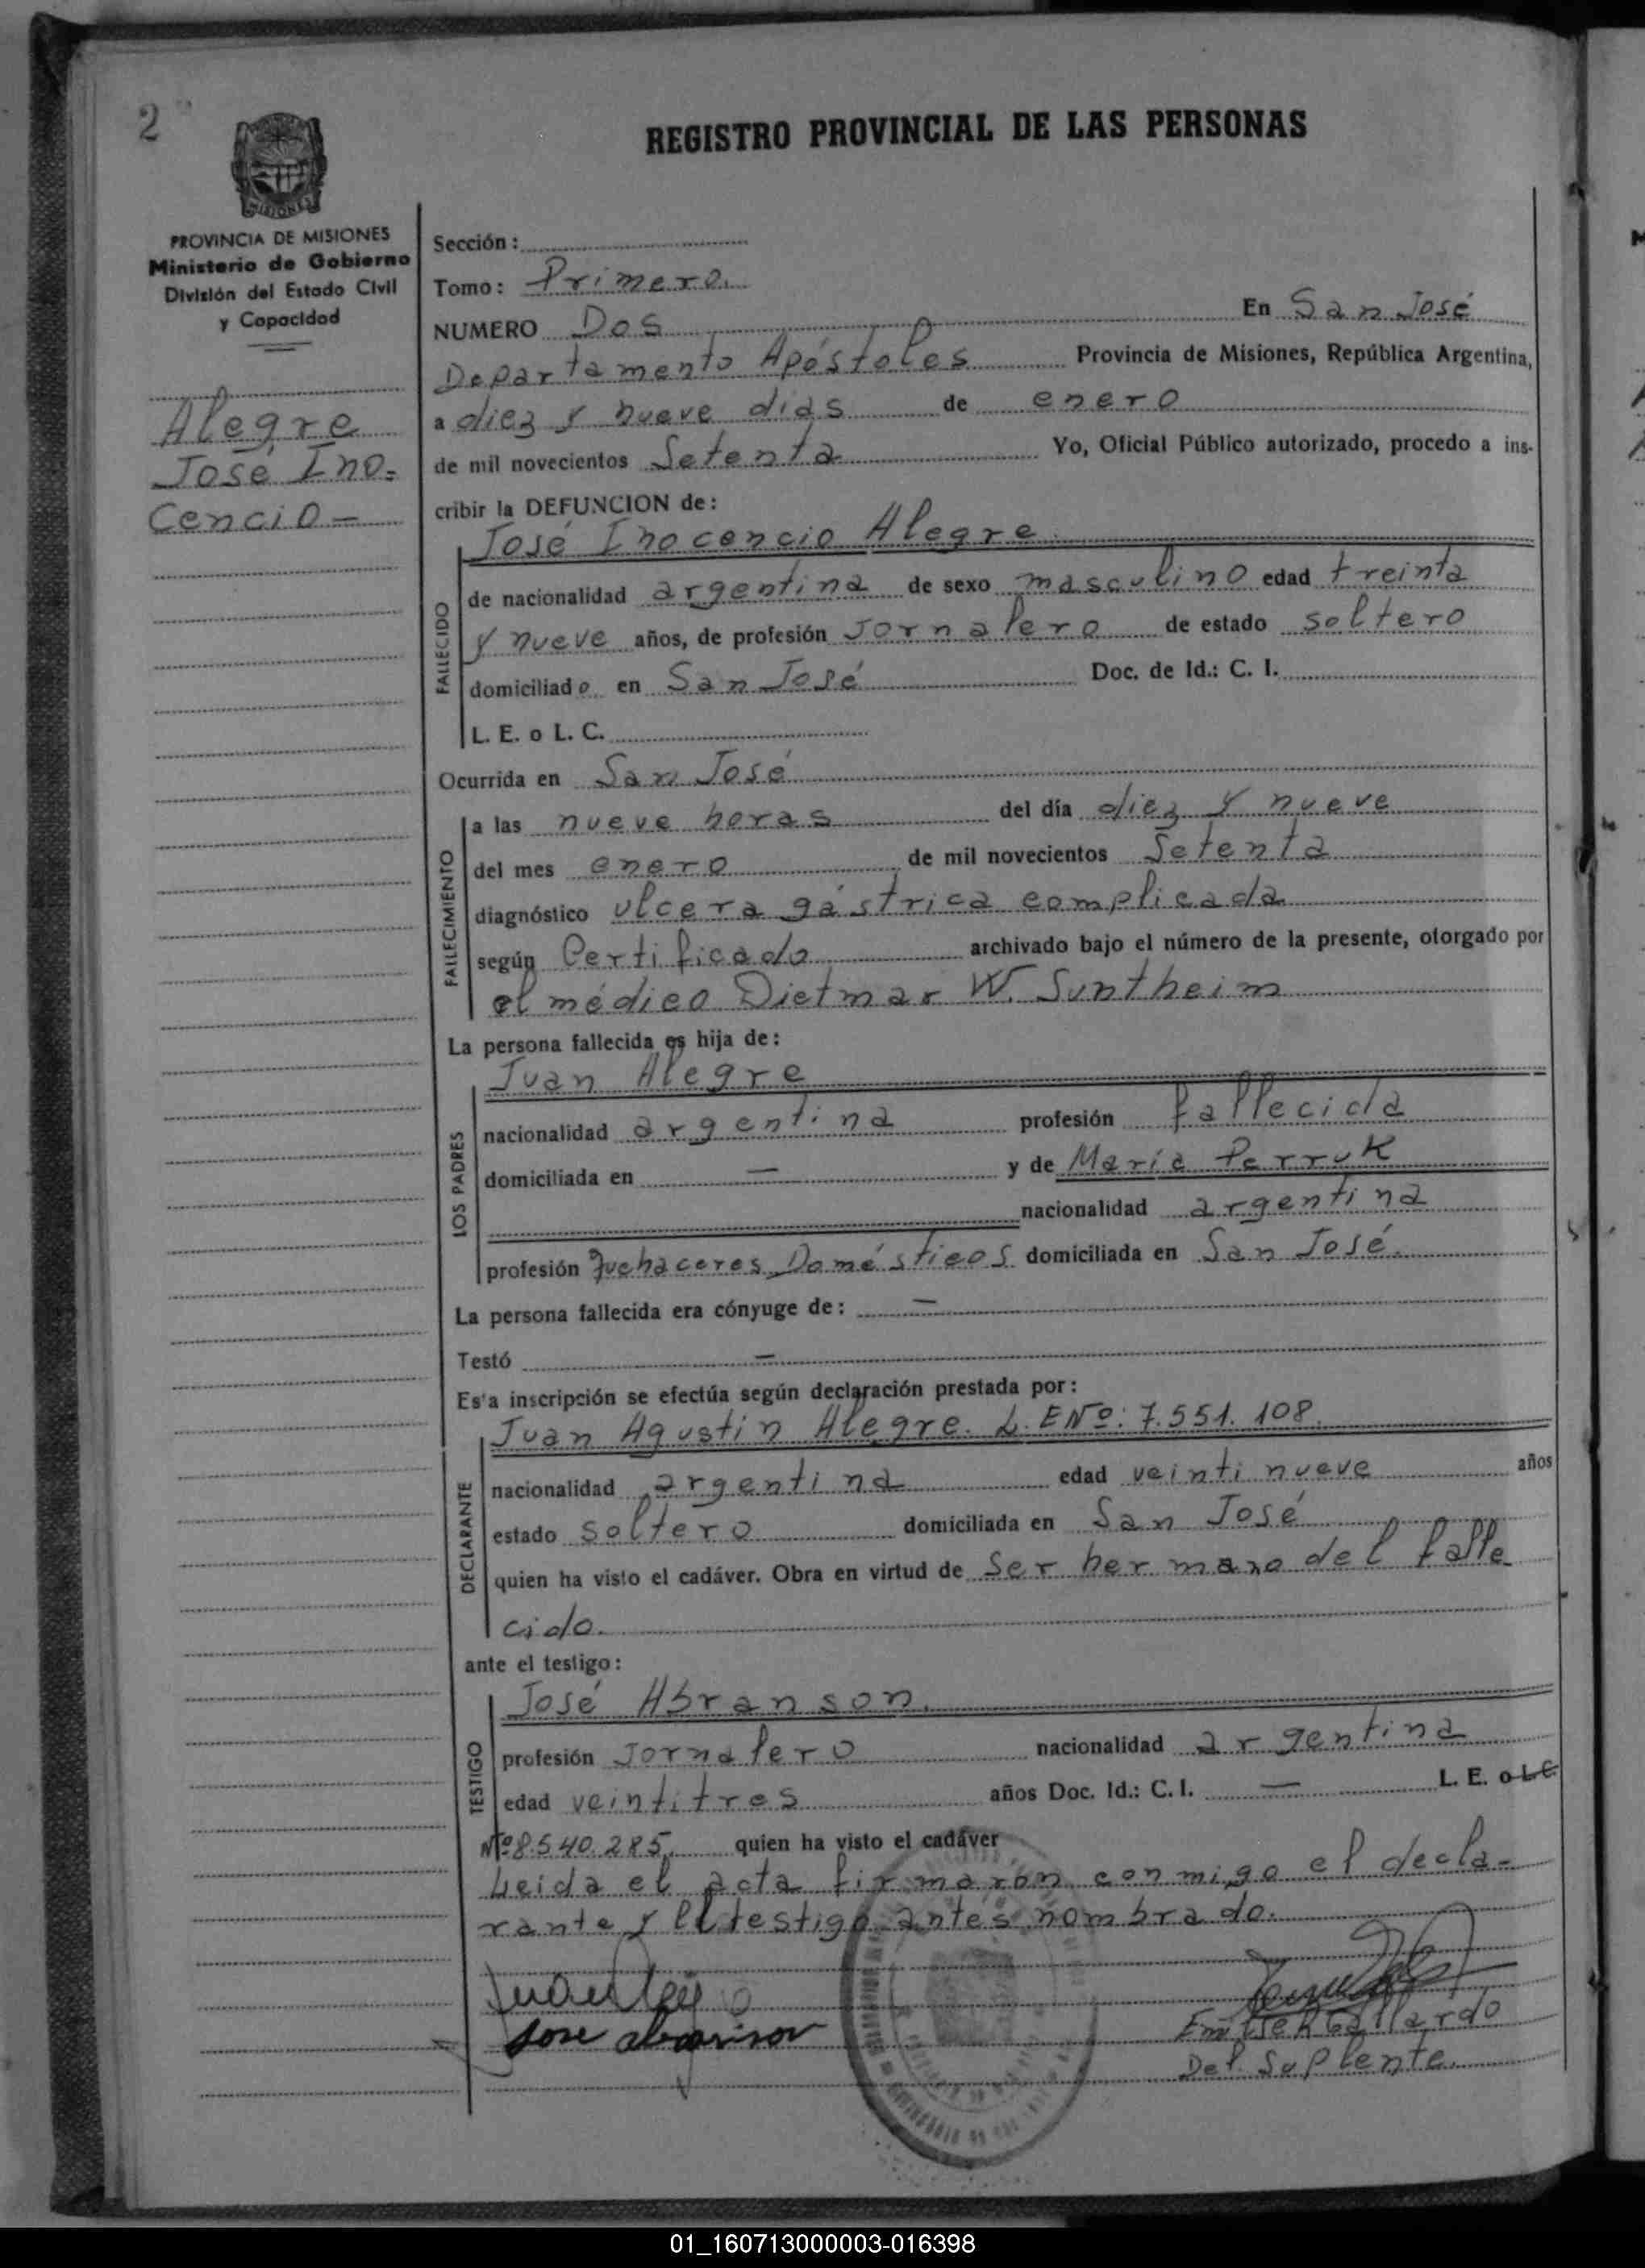 2
REGISTRO PROVINCIAL DE LAS PERSONAS
MISIONES
PROVINCIA DE MISIONES
Ministerio de Gobierno
División del Estado Civil
y Capacidad
Alegre
José Ino=
cencio-
Sección:
Tomo: Primero.
NUMERO Dos En San José
Departamento Apóstoles Provincia de Misiones, República Argentina,
a diez y nueve dias de enero
de mil novecientos Setenta Yo, Oficial Público autorizado, procedo a ins-
cribir la DEFUNCION de:
José Inocencio Alegre
FALLECIDO
de nacionalidad argentina de sexo masculino edad treinta
y nueve años, de profesión Jornalero de estado soltero
domiciliado en San José Doc. de Id.: C. I.
L. E. o L. C.
Ocurrida en San José
FALLECIMIENTO
a las nueve horas del día diez y nueve
del mes enero de mil novecientos Setenta
diagnóstico ulcera gástrica complicada
según Certificado archivado bajo el número de la presente, otorgado por
el médico Dietmar W. Suntheim
La persona fallecida es hija de:
LOS PADRES
Juan Alegre
nacionalidad argentina profesión fallecida
domiciliada en — y de María Perruk
nacionalidad argentina
profesión Quehaceres Domésticos domiciliada en San José.
La persona fallecida era cónyuge de: —
Testó —
Esta inscripción se efectúa según declaración prestada por:
DECLARANTE
Juan Agustin Alegre. L. E Nº: 7.551.108.
nacionalidad argentina edad veintinueve años
estado soltero domiciliada en San José
quien ha visto el cadáver. Obra en virtud de Ser hermano del falle
cido.
ante el testigo:
TESTIGO
José Abranson.
profesión Jornalero nacionalidad argentina
edad veintitres años Doc. Id.: C. I. — L. E. o L C
Nº 8.540.285, quien ha visto el cadáver
Leida el acta firmaron conmigo el decla-
rante y el testigo antes nombrado.
Gallardo
Del. Suplente.
01_160713000003-016398